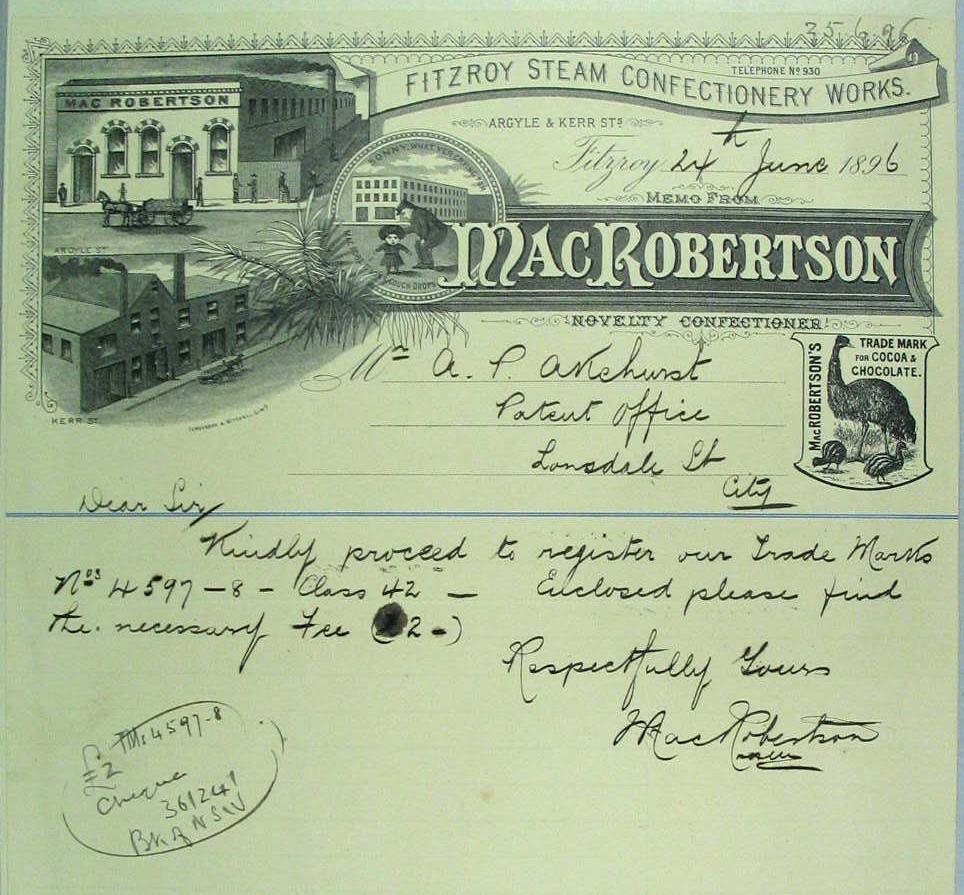 25/6/96
TELEPHONE Nº 930
FITZROY STEAM CONFECTIONERY WORKS.
ARGYLE & KERR STS
Fitzroy 24th June 1896
MEMO FROM
MACROBERTSON
NOVELTY CONFECTIONER
MAC ROBERTSON
ARGYLE ST
SONNY, WHAT
COUGH DROPS
KERR ST.
MACROBERTSON'S
TRADE MARK
FOR COCOA &
CHOCOLATE.
Mr A. P. Akehurst
Patent Office
Lonsdale St
City
Dear Sir
Kindly proceed to register our Trade Marks
Nos 4597-8 - Class 42 — Enclosed please find
the necessary Fee (£2-)
Respectfully Yours
MacRobertson
TM: 4597-8
£2
Cheque
361241
Bk of NSW